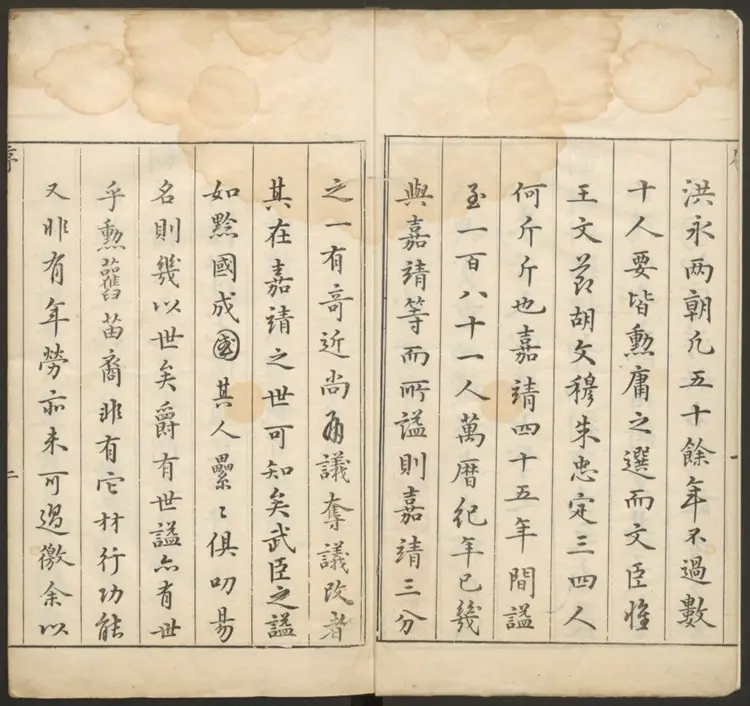 洪永两朝凡五十餘年不過數
十人要皆勲庸之選而文臣惟
王文莭胡文穆朱忠定三四人
何斤斤也嘉靖四十五年間謚
至一百八十一人萬曆紀年已幾
與嘉靖等而所謚則嘉靖三分
之一有竒近尚議奪議改者
其在嘉靖之世可知矣武臣之謚
如黔國成國其人纍〻俱叨易
名則幾以世矣爵有世謚亦有世
乎勲舊苗裔非有它材行功能
又非有年勞亦未可過徼余以
序
二